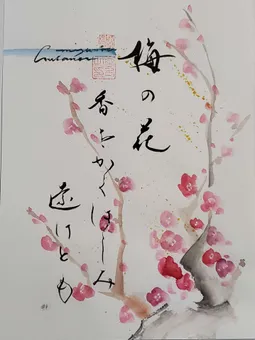 梅の花
香をかくはしみ
遠けとも